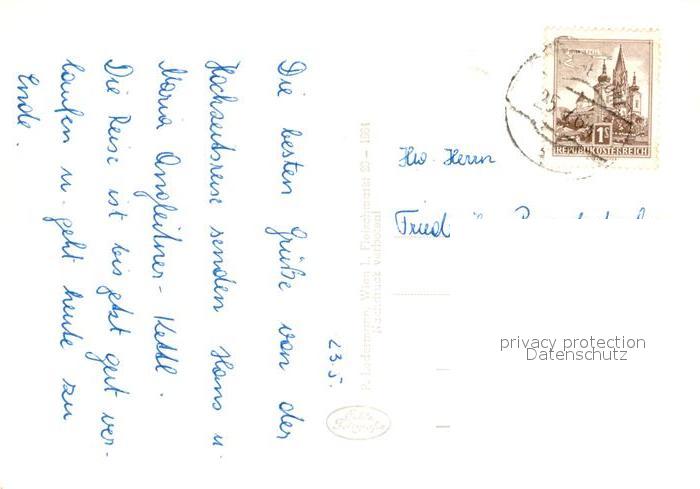 23. 5.
Die besten Grüße von der
Hochzeitsreise senden Hans u.
Maria Angleitner-Kettl.
Die Reise ist bis jetzt gut ver-
laufen u. geht heute zu
Ende.
P. Ledermann, Wien I, Fleischmarkt 20 – 1961
Nachdruck verboten!
Echte
REPUBLIK ÖSTERREICH
1S
25.
Hw. Herrn
Fried
privacy protection
Datenschutz